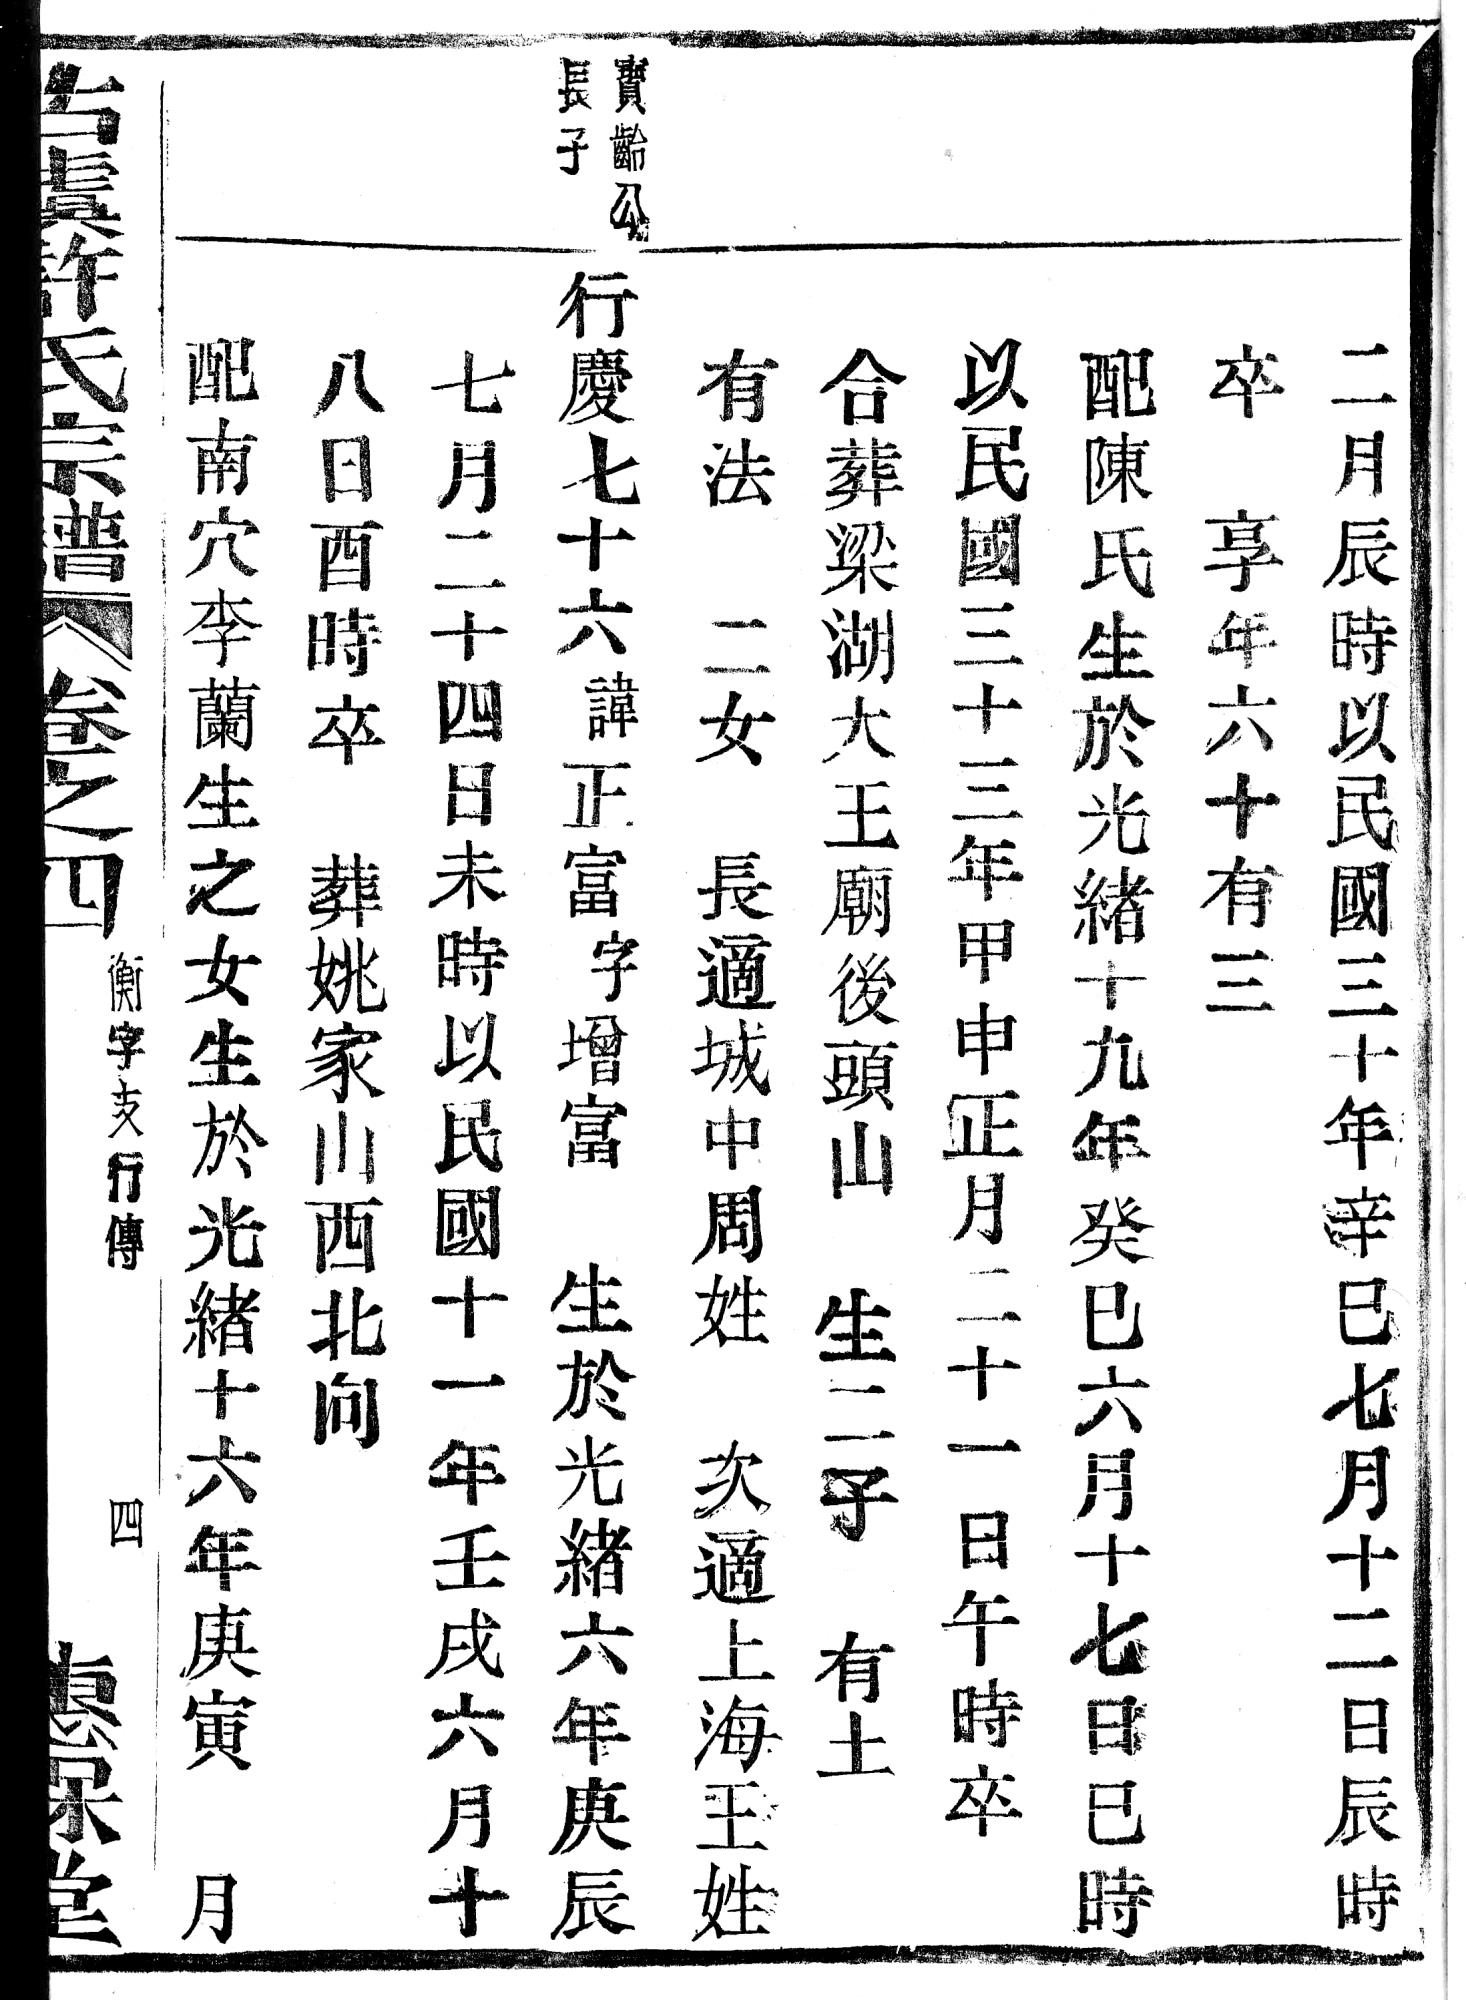 二月辰時以民國三十年辛巳七月十二日辰時
卒　享年六十有三
配陳氏生於光緒十九年癸巳六月十七日巳時
以民國三十三年甲申正月二十一日午時卒
合葬梁湖大王廟後頭山　生二子　有土
有法　二女　長適城中周姓　次適上海王姓
寶齡公
長子
行慶七十六諱正富字增富　生於光緒六年庚辰
七月二十四日未時以民國十一年壬戌六月十
八日酉時卒　葬姚家山西北向
配南穴李蘭生之女生於光緒十六年庚寅　月
古虞許氏宗譜　卷之四　衡字支行傳　四　惠保堂